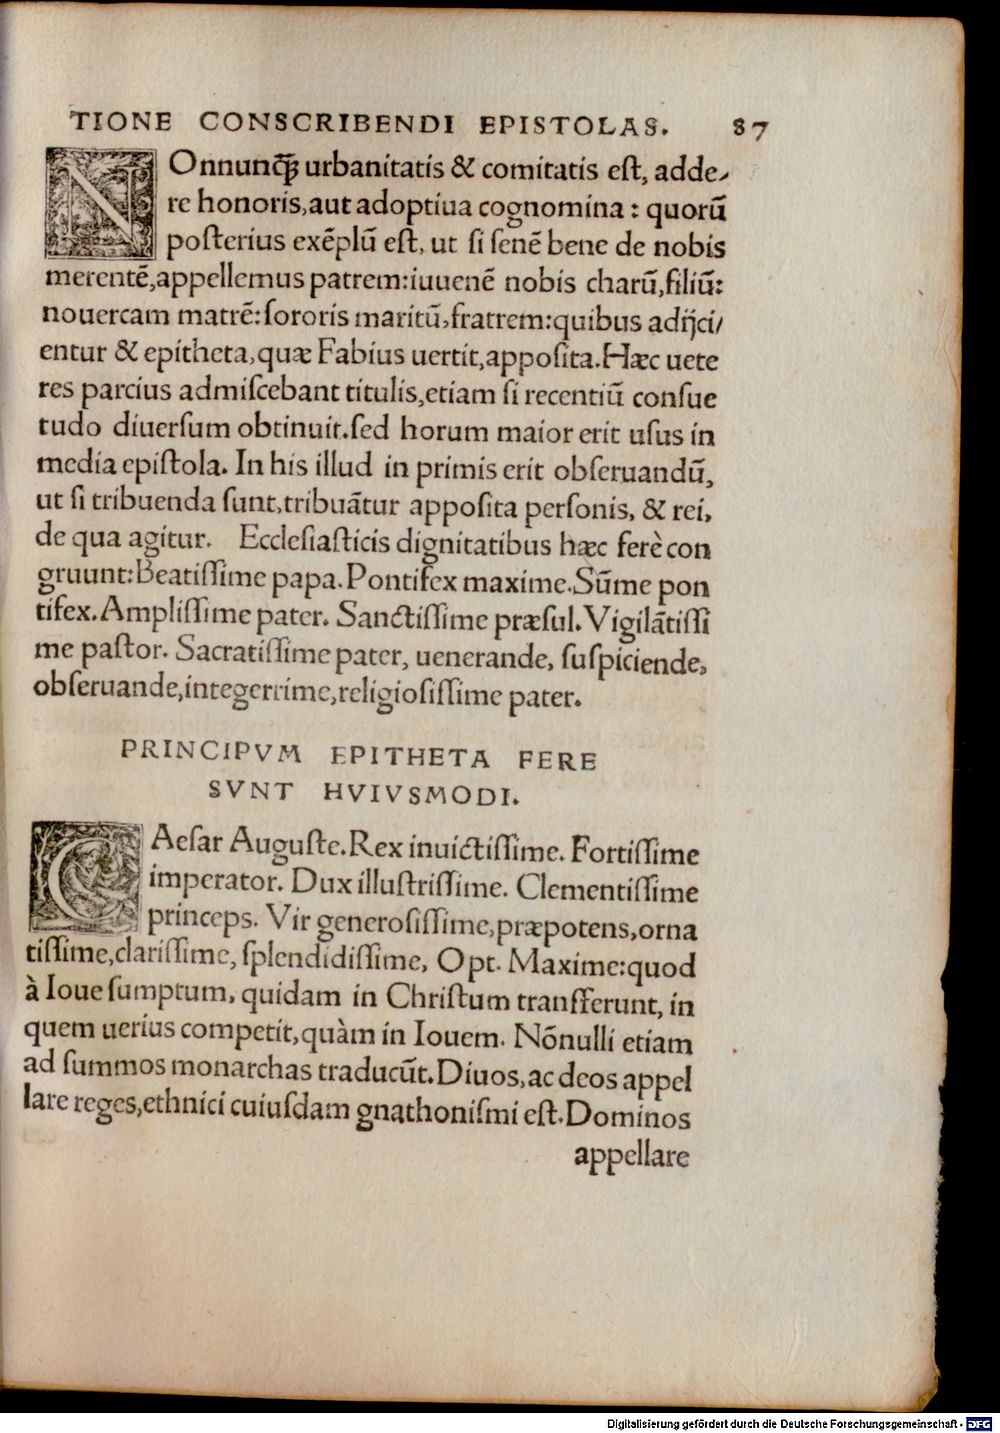 TIONE CONSCRIBENDI EPISTOLAS. 87
NOnnunꝙ̃ urbanitatis & comitatis est, adde-
re honoris,aut adoptiua cognomina : quorũ
posterius exẽplũ est, ut si senẽ bene de nobis
merentẽ,appellemus patrem:iuuenẽ nobis charũ,filiũ:
nouercam matrẽ:sororis maritũ,fratrem:quibus adijci/
entur & epitheta,quæ Fabius uertit,apposita.Hæc uete
res parcius admiscebant titulis,etiam si recentiũ consue
tudo diuersum obtinuit.sed horum maior erit usus in
media epistola. In his illud in primis erit obseruandũ,
ut si tribuenda sunt,tribuãtur apposita personis, & rei,
de qua agitur. Ecclesiasticis dignitatibus hæc ferè con
gruunt:Beatissime papa.Pontifex maxime.Sũme pon
tifex.Amplissime pater. Sanctissime præsul.Vigilãtissi
me pastor. Sacratissime pater, uenerande, suspiciende,
obseruande,integerrime,religiosissime pater.
PRINCIPVM EPITHETA FERE
SVNT HVIVSMODI.
CAesar Auguste.Rex inuictissime. Fortissime
imperator. Dux illustrissime. Clementissime
princeps. Vir generosissime,præpotens,orna
tissime,clarissime, splendidissime, Opt. Maxime:quod
à Ioue sumptum, quidam in Christum transferunt, in
quem uerius competit,quàm in Iouem. Nõnulli etiam
ad summos monarchas traducũt.Diuos,ac deos appel
lare reges,ethnici cuiusdam gnathonismi est.Dominos
appellare
Digitalisierung gefördert durch die Deutsche Forschungsgemeinschaft - DFG